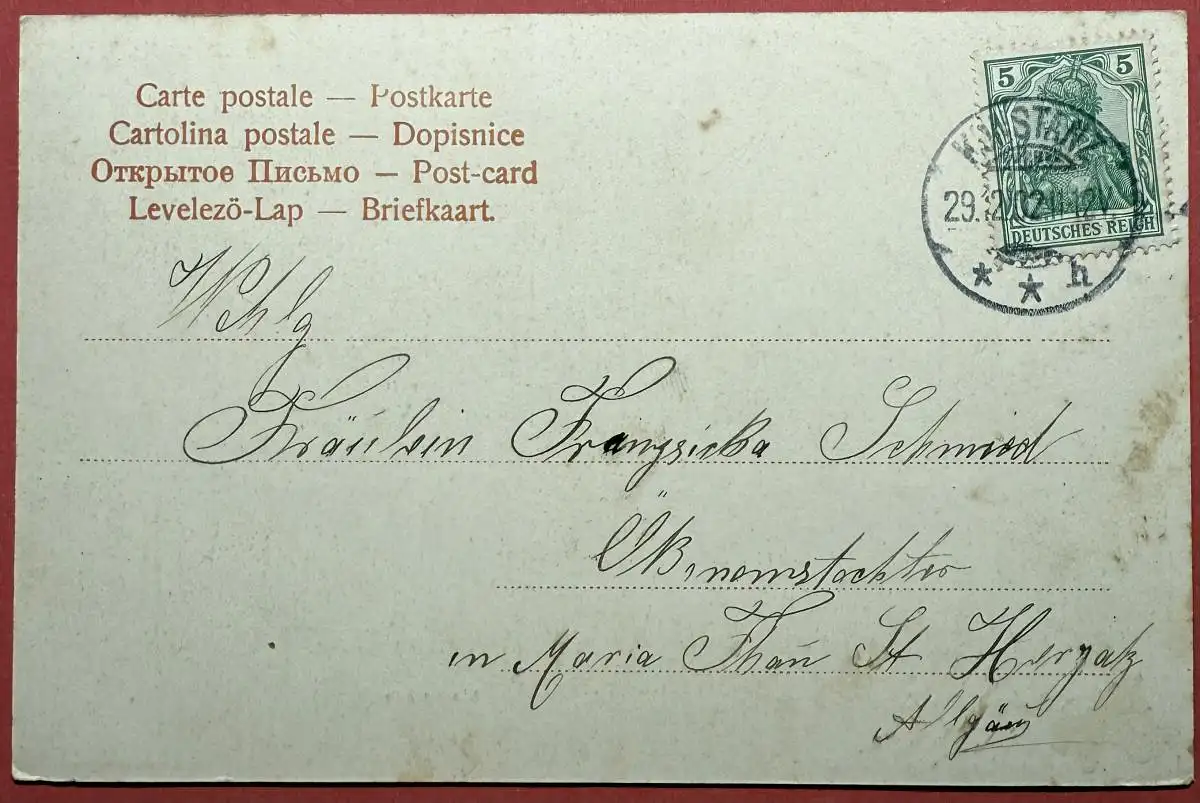 Carte postale — Postkarte
Cartolina postale — Dopisnice
Открытое Письмо — Post-card
Levelezö-Lap — Briefkaart.
5 5
DEUTSCHES REICH
KONSTANZ
29.12.02. 11-12V.
* * h
Wohlg
Fräulein Franzsicka Schmied
Ökonomstochter
in Maria Thān St Hergatz
Allgäu